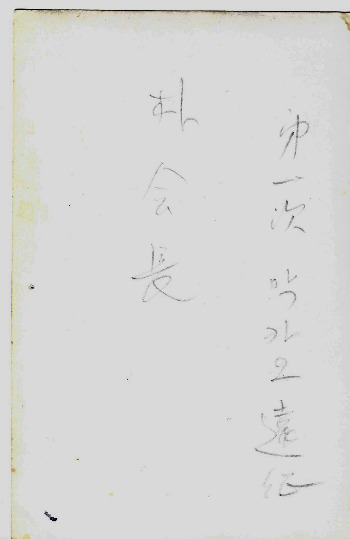 第一次 막가오 遠征
朴会長